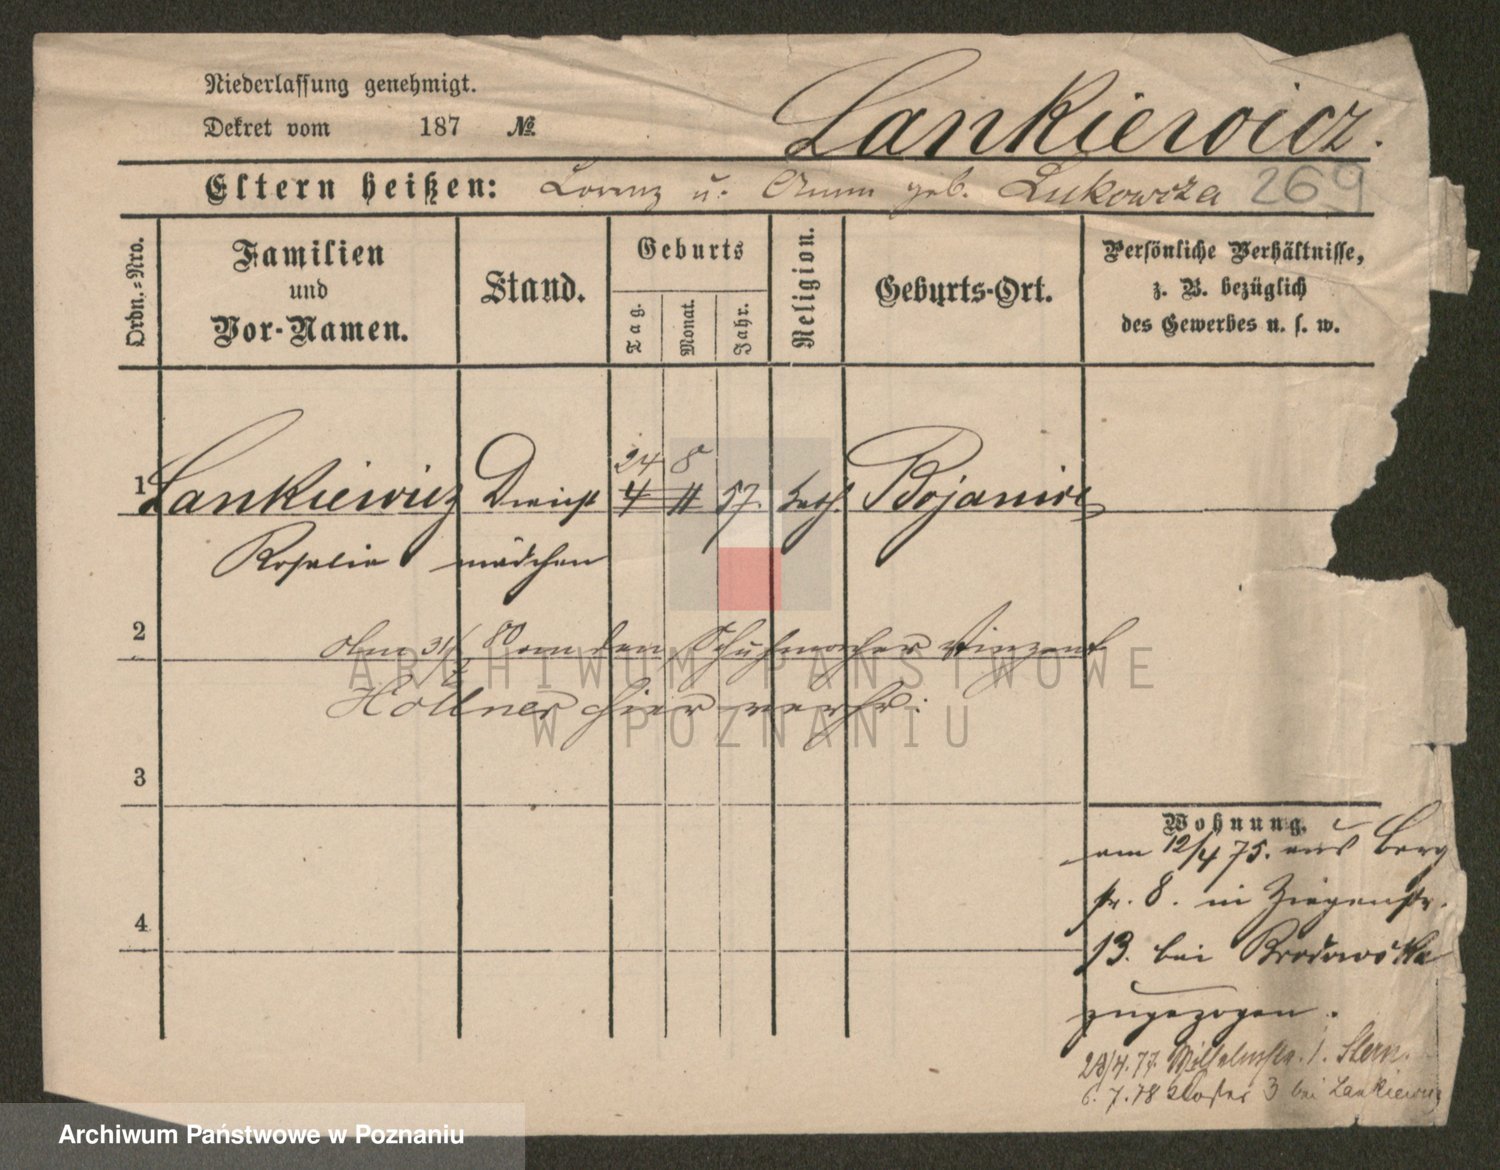 Niederlassung genehmigt.
Dekret vom 187 №
Lankiewicz.
Eltern heißen: Lorenz u. Anna geb. Lukowska 269
Ordn.-Nro.
Familien und Vor-Namen.
Stand.
Geburts
Tag.
Monat.
Jahr.
Religion.
Geburts-Ort.
Persönliche Verhältnisse,
z. B. bezüglich
des Gewerbes u. s. w.
24 8
1 Lankiewicz Dienst 4 11 57. kath. Bojanice
Rosalie mädchen
2
Am 31/ 80 an den Schuhmacher Vinzent
Höllner hier verhr.
3
4
Wohnung.
am 12/4 75. aus Berg
str. 8. in Ziegenstr.
13. bei Brodowska
zugezogen.
28/4.77. Wilhelmstr. 1. Stern.
6.7.78 Kloster 3 bei Lankiewicz
ARCHIWUM PAŃSTWOWE
W POZNANIU
Archiwum Państwowe w Poznaniu